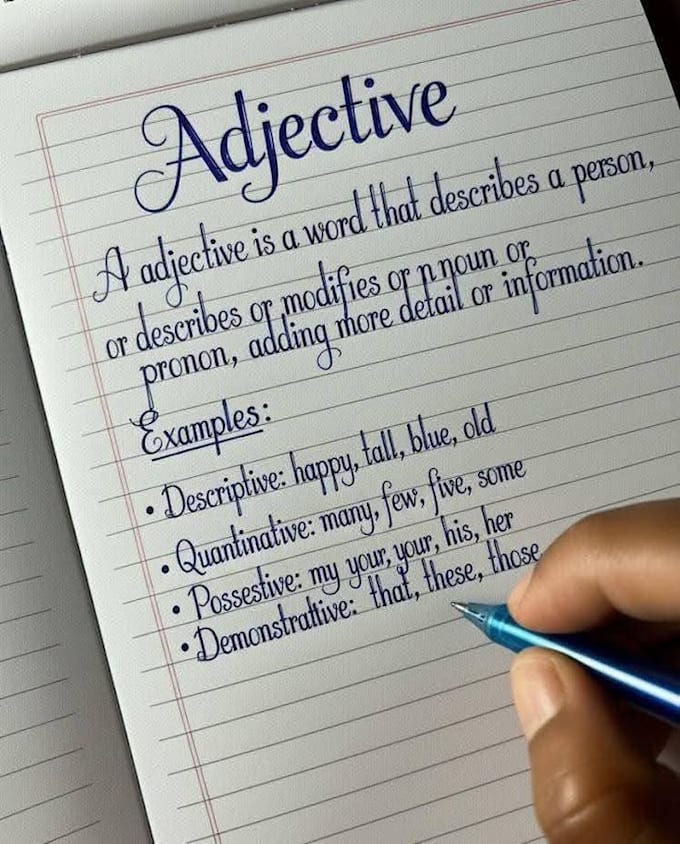 Adjective
A adjective is a word that describes a person,
or describes or modifies or n noun or
pronon, adding more detail or information.
Examples:
• Descriptive: happy, tall, blue, old
• Quantinative: many, few, five, some
• Possestive: my your, your, his, her
• Demonstrattive: that, these, those